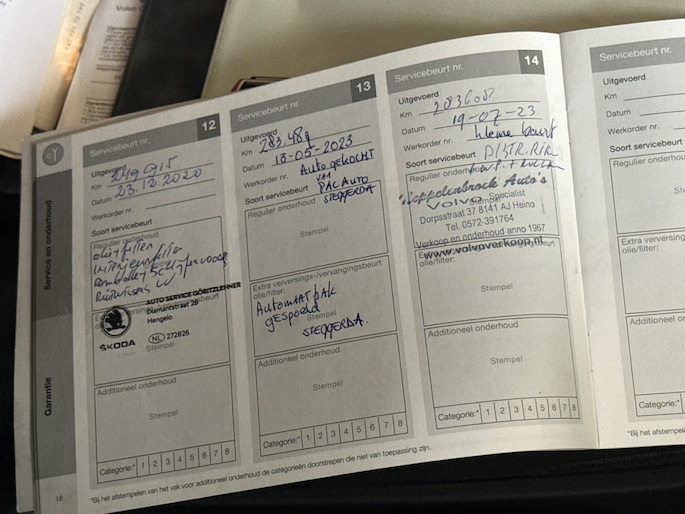 Volvo
Service en onderhoud
Garantie
18
Servicebeurt nr. 12
Uitgevoerd
Km 249915
Datum 23.12.2020
Werkorder nr.
Soort servicebeurt
Regulier onderhoud
oliefilter
Interieurfilter
Ruitwissers
Extra verversings-/vervangingsbeurt
olie/filter:
AUTO SERVICE GÖRITZLEHNER
Diamantstraat 29
Hengelo
NL 272826
ŠKODA
Stempel
Additioneel onderhoud
Stempel
Categorie:* 1 2 3 4 5 6 7 8
Servicebeurt nr. 13
Uitgevoerd
Km 283.48
Datum 13-05-2023
Werkorder nr. Auto gekocht
Soort servicebeurt PALAUTO
STEGGERDA
Regulier onderhoud
Stempel
Extra verversings-/vervangingsbeurt
olie/filter:
Automaatbak
gespoeld
Stempel
STEGGERDA.
Additioneel onderhoud
Stempel
Categorie:* 1 2 3 4 5 6 7 8
Servicebeurt nr. 14
Uitgevoerd
Km 283608
Datum 19-07-23
Werkorder nr. kleine beurt
Soort servicebeurt DISTR.RIEM
Regulier onderhoud
Keppelenbroek Auto's
Volvo Specialist
Dorpsstraat 37 8141 AJ Heino
Tel. 0572-391764
Verkoop en onderhoud anno 1967
www.volvoverkoop.nl
Extra verversings-/vervangingsbeurt
olie/filter:
Stempel
Additioneel onderhoud
Stempel
Categorie:* 1 2 3 4 5 6 7 8
*Bij het afstempelen van het vak voor additioneel onderhoud de categorieën doorstrepen die niet van toepassing zijn.
Servicebeurt nr.
Uitgevoerd
Km
Datum
Werkorder nr.
Soort service
Regulier onder
Extra verversing
olie/filter:
Additioneel ond
Categorie:* 1
*Bij het afstempele